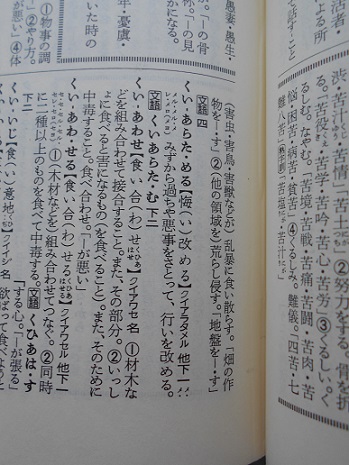 活者・
よる所
話・こと
渋・苦汁・苦情
「苦土」②努力をする。骨を折
苦学・苦吟・苦心・苦労 ③くるしい。く
るしむ。なやむ。「苦境・苦戦・苦痛・苦闘・苦肉・苦
悩・困苦・病苦・貧苦」④くるしみ。難儀。「四苦・七
難八苦」
愚妻・愚生・
かになる。
「―の骨
―」の見
年・憂虞・
いた時の
①物事の調
②やり方。
が悪い」④体
(害虫・害鳥・害獣などが)乱暴に食い散らす。「畑の作
物を―・す」②(他の領域を)荒らし侵す。「地盤を―・す」
文語 四
くい‐あらた・める【悔(い)改める】クイアラタメル 他下一
みずから過ちや悪事をさとって、行いを改める。
文語 くいあらた・む 下二
くい‐あわせ【食(い)合(わ)せ】クイアワセ 名 ①材木な
どを組み合わせて接合すること。また、その部分。②いっし
ょに食べると害になるもの(を食べること)。また、そのために
中毒すること。食べ合わせ。「―が悪い」
くい‐あわ・せる【食(い)合(わ)せる】クイアワセル 他下一
①木材などを組み合わせてつなぐ。②同時
に二種以上のものを食べて中毒する。文語 くひあは・す
下二
くい‐いじ【食(い)意地】クイイジ 名 欲ばって食べようと
する心。「―が張る」